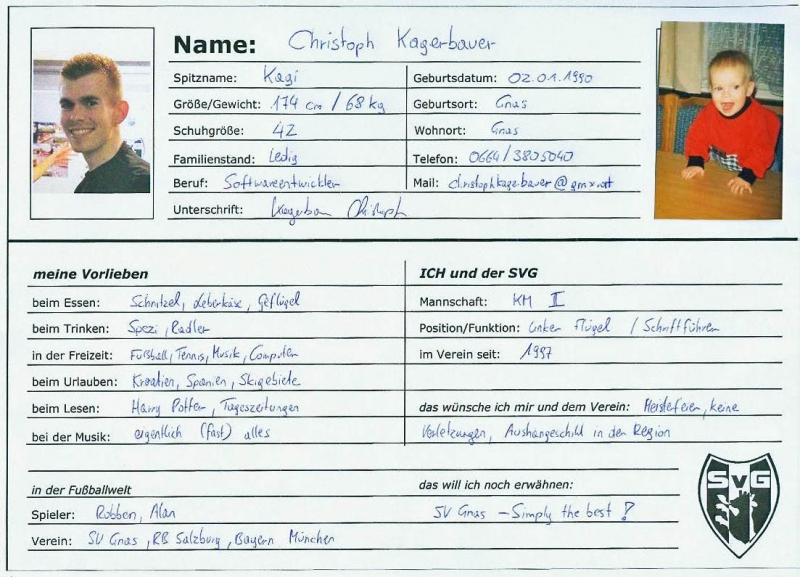 Name: Christoph Kagerbauer
Spitzname: Kagi
Geburtsdatum: 02.01.1990
Größe/Gewicht: 174 cm / 68 kg
Geburtsort: Gnas
Schuhgröße: 42
Wohnort: Gnas
Familienstand: Ledig
Telefon: 0664/3805040
Beruf: Softwareentwickler
Mail: christophkagerbauer@gmx.at
Unterschrift: Kagerbau Christoph
meine Vorlieben
beim Essen: Schnitzel, Leberkäse, Geflügel
beim Trinken: Spezi, Radler
in der Freizeit: Fußball, Tennis, Musik, Computer
beim Urlauben: Kroatien, Spanien, Skigebiete
beim Lesen: Harry Potter, Tageszeitungen
bei der Musik: eigentlich (fast) alles
ICH und der SVG
Mannschaft: KM II
Position/Funktion: linker Flügel / Schriftführer
im Verein seit: 1997
das wünsche ich mir und dem Verein: Meisterfeier, keine
Verletzungen, Aushängeschild in der Region
in der Fußballwelt
Spieler: Robben, Alan
Verein: SV Gnas, RB Salzburg, Bayern München
das will ich noch erwähnen:
SV Gnas - Simply the best!
SVG